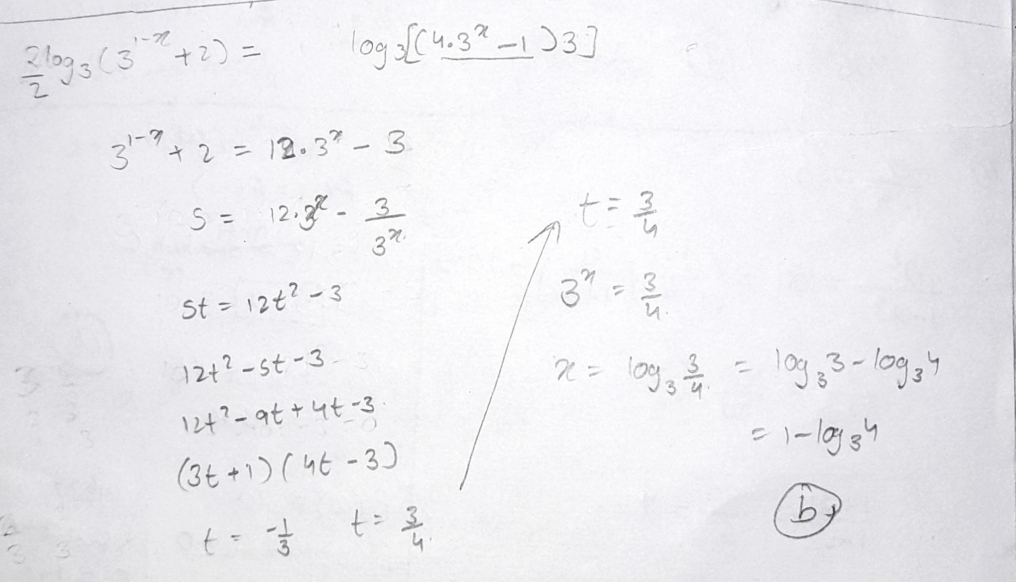 2/2 log₃(3^(1-x) + 2) = log₃[(4.3^x - 1)3]
3^(1-x) + 2 = 12.3^x - 3
5 = 12.3^x - 3/3^x
5t = 12t² - 3
12t² - 5t - 3
12t² - 9t + 4t - 3
(3t + 1)(4t - 3)
t = -1/3 t = 3/4
t = 3/4
3^x = 3/4
x = log₃ 3/4 = log₃3 - log₃4
= 1 - log₃4
b)